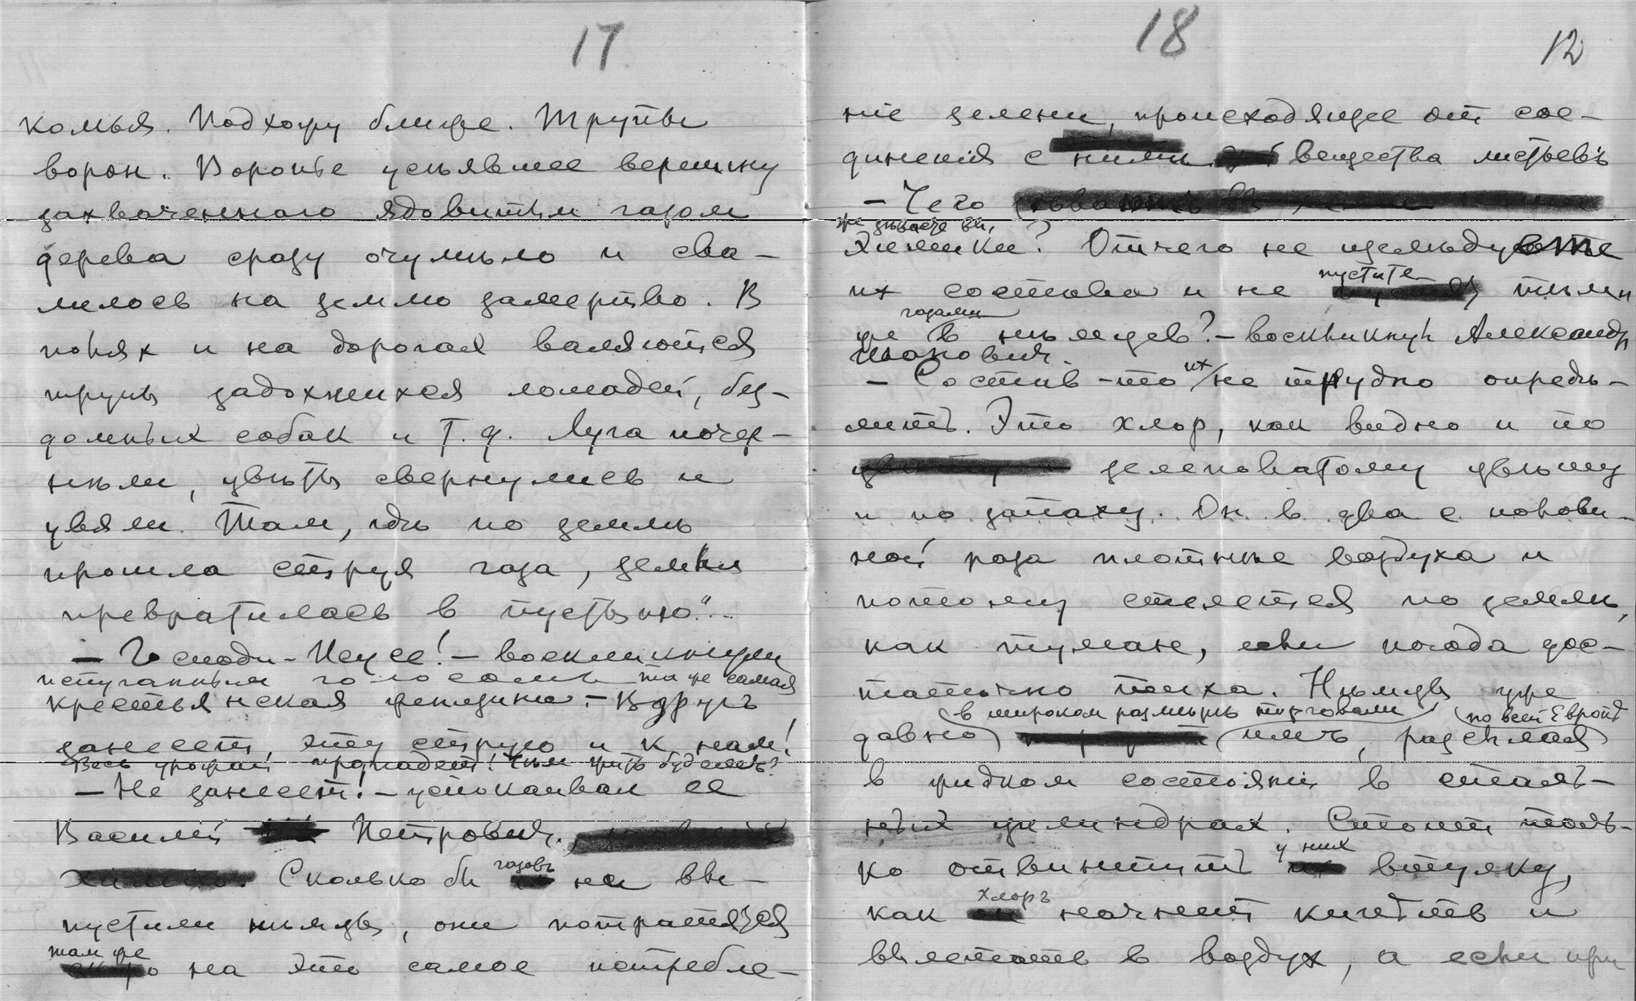 17
комья. Подхожу ближе. Трупы
ворон. Воронье усеявшее вершину
захваченнаго ядовитым газом
дерева сразу очумѣло и сва-
лилось на землю замертво. В
полях и на дорогах валяются
трупы задохшихся лошадей, без-
домных собак и т. д. Луга почер-
нѣли, цвѣты свернулись и
увяли. Там, гдѣ по землѣ
прошла струя газа, земля
превратилась в пустыню"...
— Господи-Исусе! — воскликнула
испуганным голосомъ та же самая
крестьянская женщина. — Вдругъ
занесет эту струю и к нам!
Весь урожай пропадет! Чѣм жить будемъ?
— Не занесет! — успокаивал ее
Василий Петрович.
Сколько бы газовъ на вы-
пустили нѣмцы, они потратятся
там же
на это самое потребле-
18
12
ніе зелени, происходящее от сое-
динения с ними вещества листьевъ
— Чего
же зѣваете вы,
химики? Отчего не изслѣдуете
их состава и не пустите тѣми
газами
же в нѣмцев? — воскликнул Александр
Иванович.
— Состав-то их не трудно опредѣ-
лить. Это хлор, как видно и по
зеленоватому цвѣту
и по запаху. Он в два с полови-
ной раза плотнѣе воздуха и
потому стелется по землѣ,
как туман, если погода дос-
таточно тиха. Нѣмцы уже
в широком размѣрѣ торговали
по всей Европѣ
давно имъ, разсылая
в жидком состояніи в сталь-
ных цилиндрах. Стоит толь-
ко отвинтить у них втулку,
как хлоръ начнет кипѣть и
вылетать в воздух, а если при